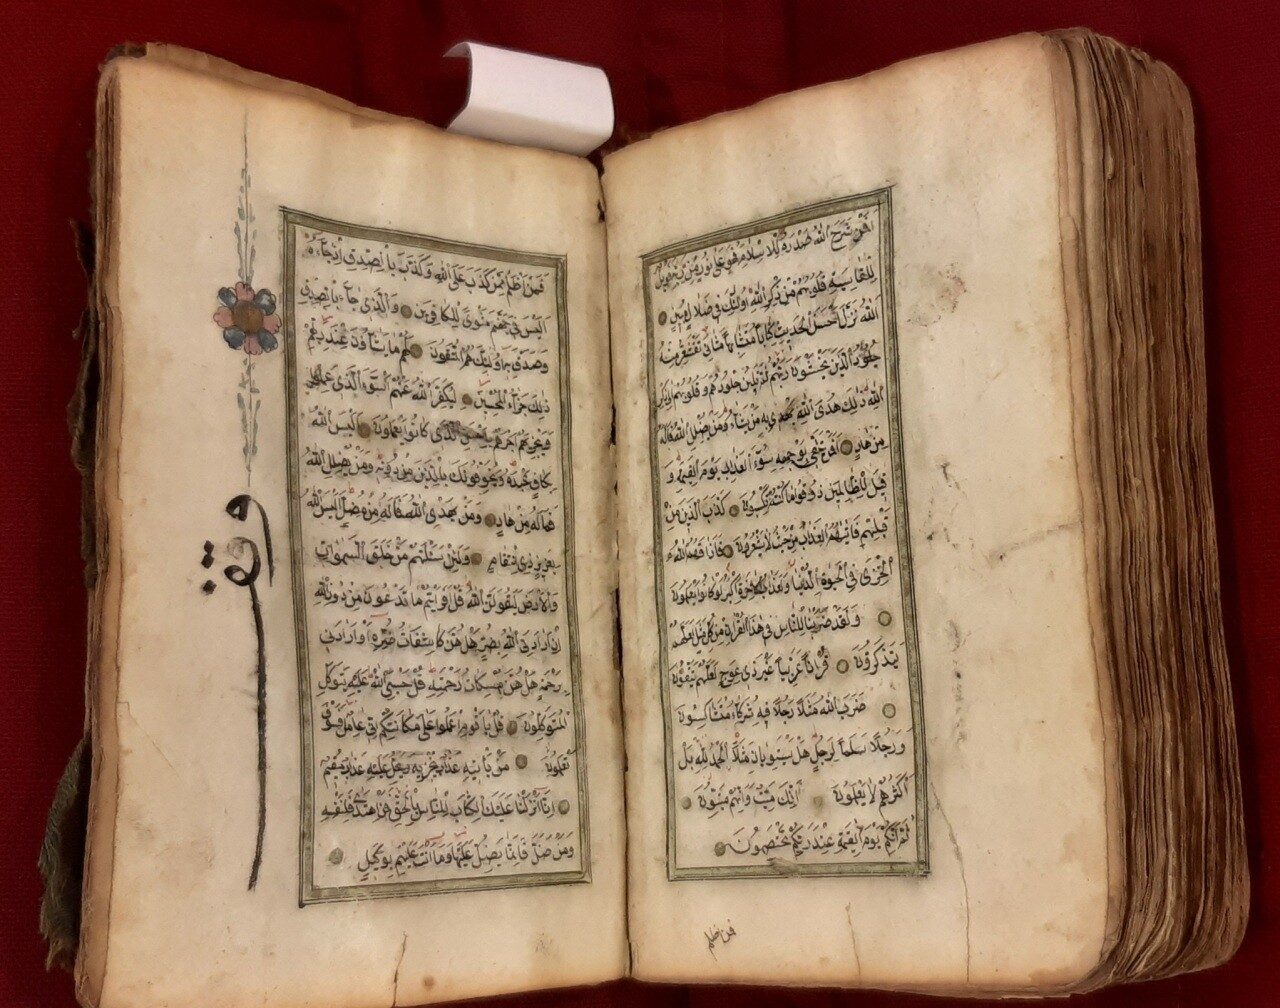 افمن شرح الله صدره للاسلام فهو على نور من ربه فويل
للقاسية قلوبهم من ذكر الله اولئك في ضلال مبين
الله نزل احسن الحديث كتابا متشابها مثاني تقشعر منه
جلود الذين يخشون ربهم ثم تلين جلودهم وقلوبهم الى ذكر
الله ذلك هدى الله يهدي به من يشاء ومن يضلل الله فماله
من هاد افمن يتقي بوجهه سوء العذاب يوم القيمة و
قيل للظالمين ذوقوا ما كنتم تكسبون كذب الذين من
قبلهم فاتيهم العذاب من حيث لا يشعرون فاذاقهم الله
الخزي في الحيوة الدنيا ولعذاب الاخرة اكبر لو كانوا يعلمون
ولقد ضربنا للناس في هذا القران من كل مثل لعلهم
يتذكرون قرانا عربيا غير ذي عوج لعلهم يتقون
ضرب الله مثلا رجلا فيه شركاء متشاكسون
ورجلا سلما لرجل هل يستويان مثلا الحمد لله بل
اكثرهم لا يعلمون انك ميت وانهم ميتون
ثم انكم يوم القيمة عند ربكم تختصمون
فمن اظلم
فمن اظلم ممن كذب على الله وكذب بالصدق اذ جاءه
اليس في جهنم مثوى للكافرين والذي جاء بالصدق
وصدق به اولئك هم المتقون لهم ما يشاؤن عند ربهم
ذلك جزاء المحسنين ليكفر الله عنهم اسوء الذي عملوا
ويجزيهم اجرهم باحسن الذي كانوا يعملون اليس الله
بكاف عبده ويخوفونك بالذين من دونه ومن يضلل الله
فماله من هاد ومن يهدي الله فماله من مضل اليس الله
بعزيز ذي انتقام ولئن سئلتهم من خلق السموات
والارض ليقولن الله قل افرايتم ما تدعون من دون الله
ان ارادني الله بضر هل هن كاشفات ضره او ارادني
برحمة هل هن ممسكات رحمته قل حسبي الله عليه يتوكل
المتوكلون قل يا قوم اعملوا على مكانتكم اني عامل فسوف
تعلمون من ياتيه عذاب يخزيه ويحل عليه عذاب مقيم
انا انزلنا عليك الكتاب للناس بالحق فمن اهتدى فلنفسه
ومن ضل فانما يضل عليها وما انت عليهم بوكيل
وقف